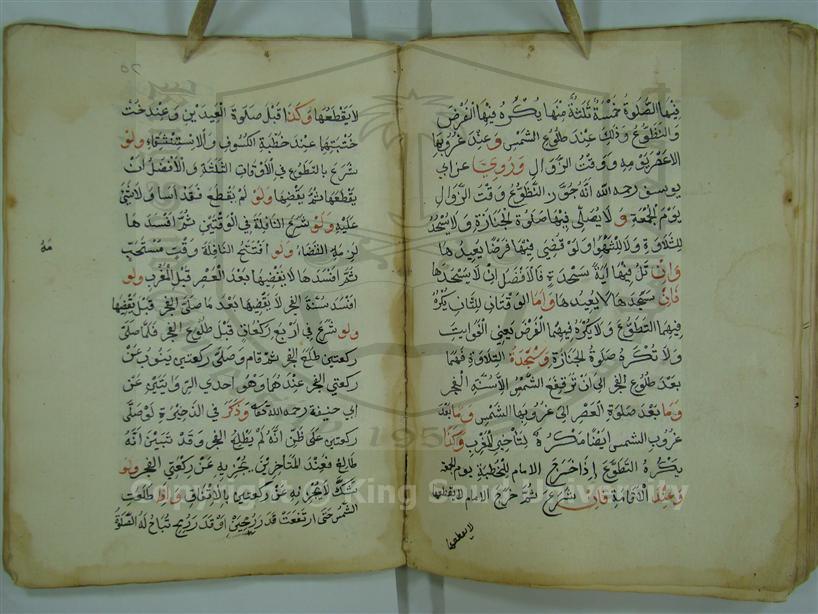 فيها الصلوة خمسة ثلثة منها يكره فيها الفرض
والتطوع وذلك عند طلوع الشمس وعند غروبها
الا عصر يومه ووقت الزوال وروي عن ابي
يوسف رحمه الله انه جوز التطوع وقت الزوال
يوم الجمعة ولا يصلى فيها صلوة الجنازة ولا يسجد
للتلاوة ولا للسهو ولو قضى فيها فرضا يعيدها
وان تلا فيها اية سجدة فالافضل ان لا يسجدها
فان سجدها لا يعيدها واما الوقتان يكره
فيهما التطوع ولا يكره فيهما الفرض يعني الفوايت
ولا تكره صلوة الجنازة وسجدة التلاوة فهما
بعد طلوع الفجر الى ان ترتفع الشمس الا سنة الفجر
وما بعد صلوة العصر الى غروبها الشمس وما بعد
غروب الشمس ايضا مكروه لتاخير المغرب وكذا
يكره التطوع اذا خرج الامام للخطبة يوم الجمعة
وعند الاقامة فان شرع ثم خرج الامام لا يقطعها
لا يقطعها
٢٥
لا يقطعها وكذا قبل صلوة العيدين وعند خت
ختبتها عند خطبة الكسوف والاستسقاء ولو
شرع بالتطوع في الاوقات الثلثة والافضل ان
يقطعها ثم يقضها ولو لم يقطع فقد اسا ولا شئ
عليه ولو شرع النافلة في الوقتين ثم افسدها
لزمه القضاء ولو افتتح النافلة وقت مستحب
مه
ثم افسدها لا يقضيها بعد العصر قبل المغرب ولو
افسد سنة الفجر لا يقضيها بعد ما صلى الفجر قبل يقضها
ولو شرع في اربع ركعات قبل طلوع الفجر فلما صلى
ركعتين طلع الفجر ثم قام وصلى ركعتين ينوب عن
ركعتي الفجر عندهما وهو احدى الروايتين عن
ابي حنيفة رحمه الله وذكر في الذخيرة لو صلى
ركعتين على ظن انه لم يطلع الفجر وقد تبين انه
طالع فعند المتاخرين يجزيه عن ركعتي الفجر ولو
شك لا يجزيه عن ركعتين بالاتفاق واذا طلعت
الشمس حتى ارتفعت قدر رمحين او قدر رمح تباح له الصلوة
Copyright © King Saud University
1957